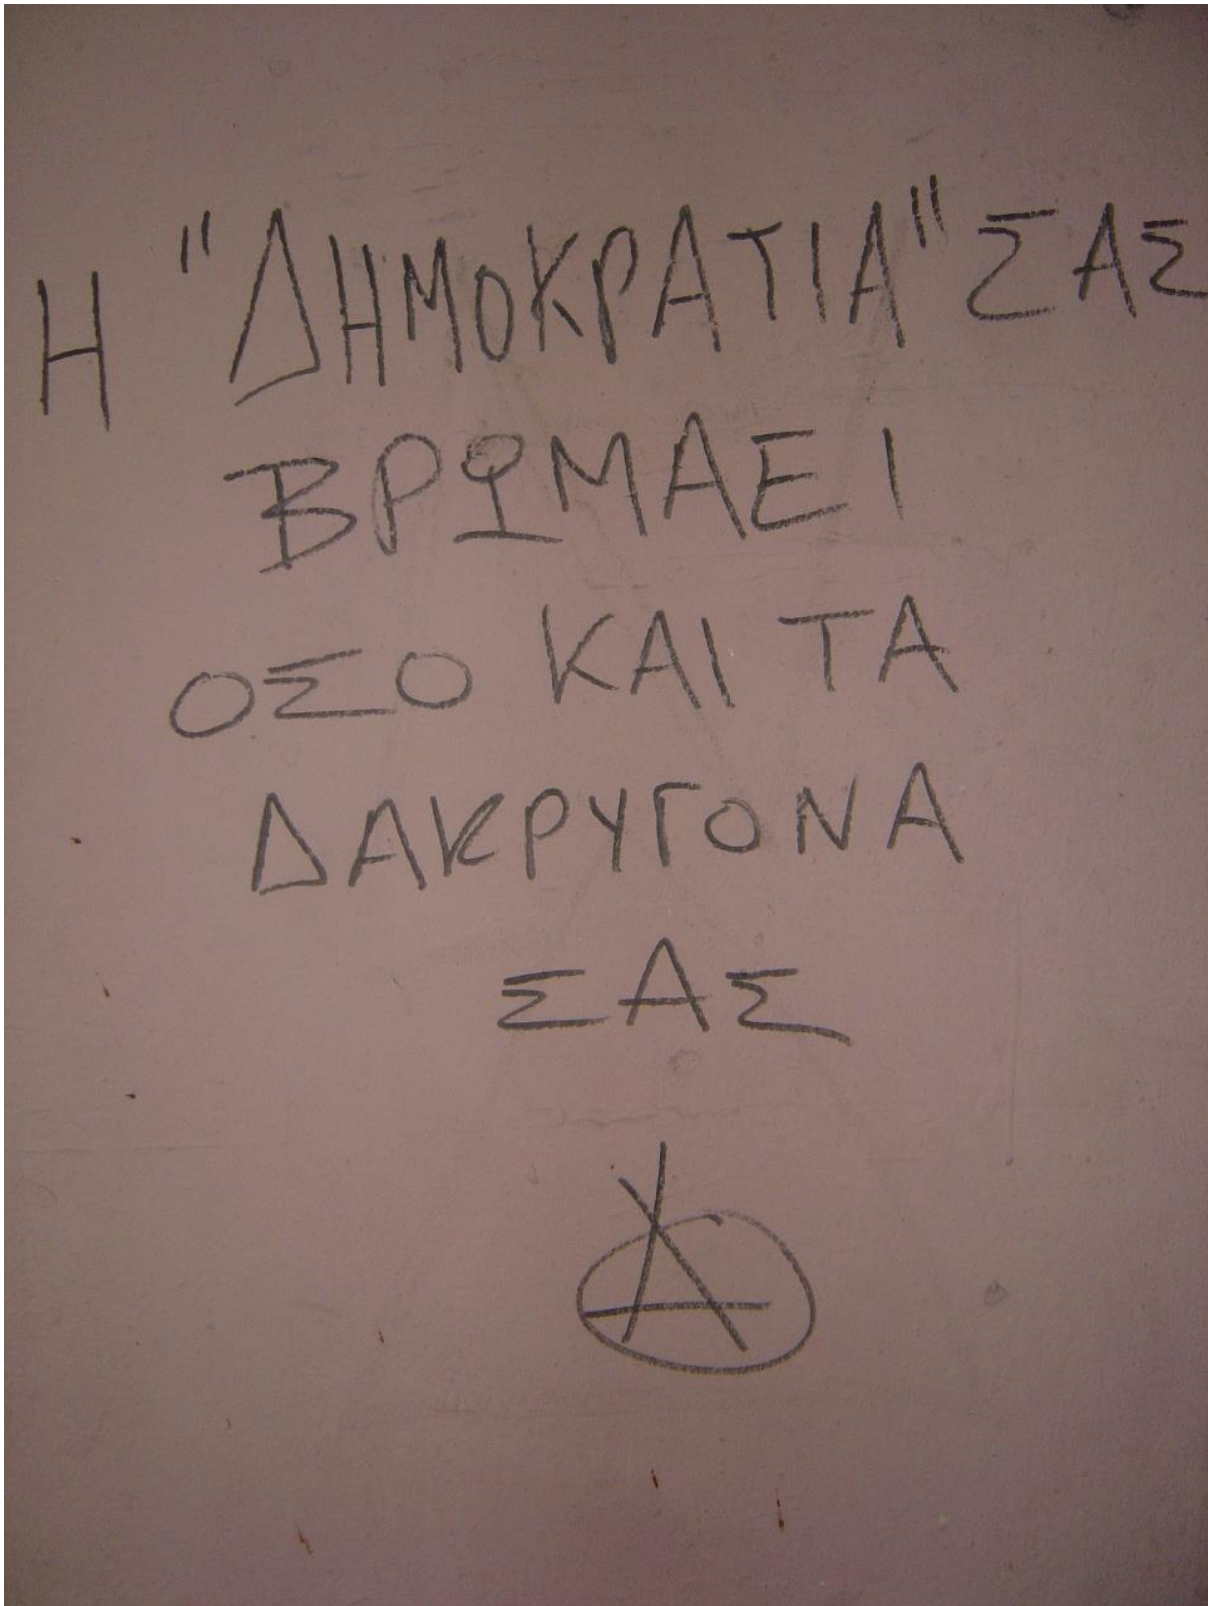 Η "ΔΗΜΟΚΡΑΤΙΑ" ΣΑΣ
ΒΡΩΜΑΕΙ
ΟΣΟ ΚΑΙ ΤΑ
ΔΑΚΡΥΓΟΝΑ
ΣΑΣ